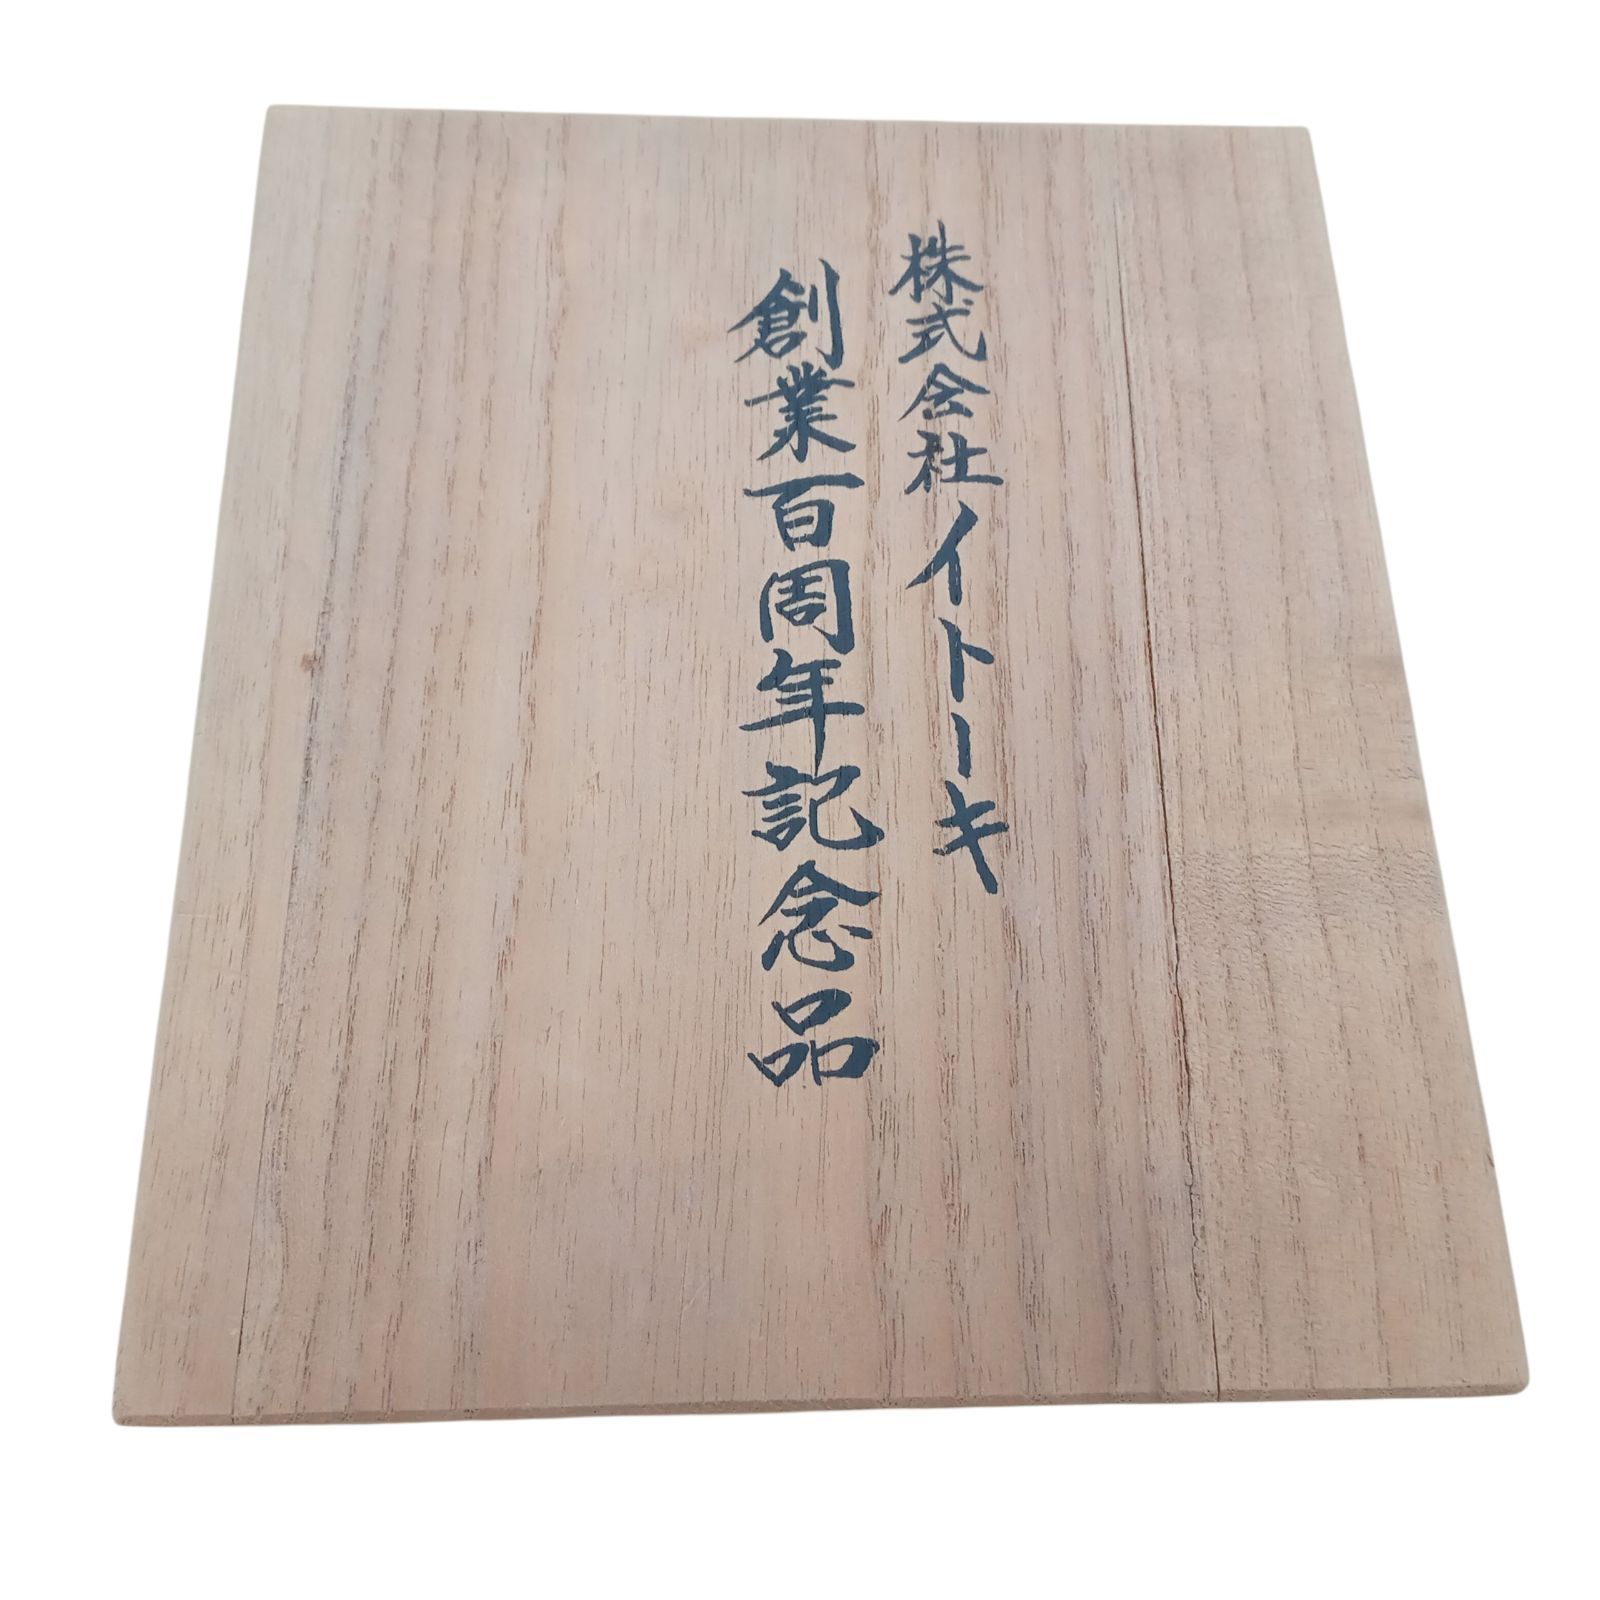 株式会社イトーキ
創業百周年記念品